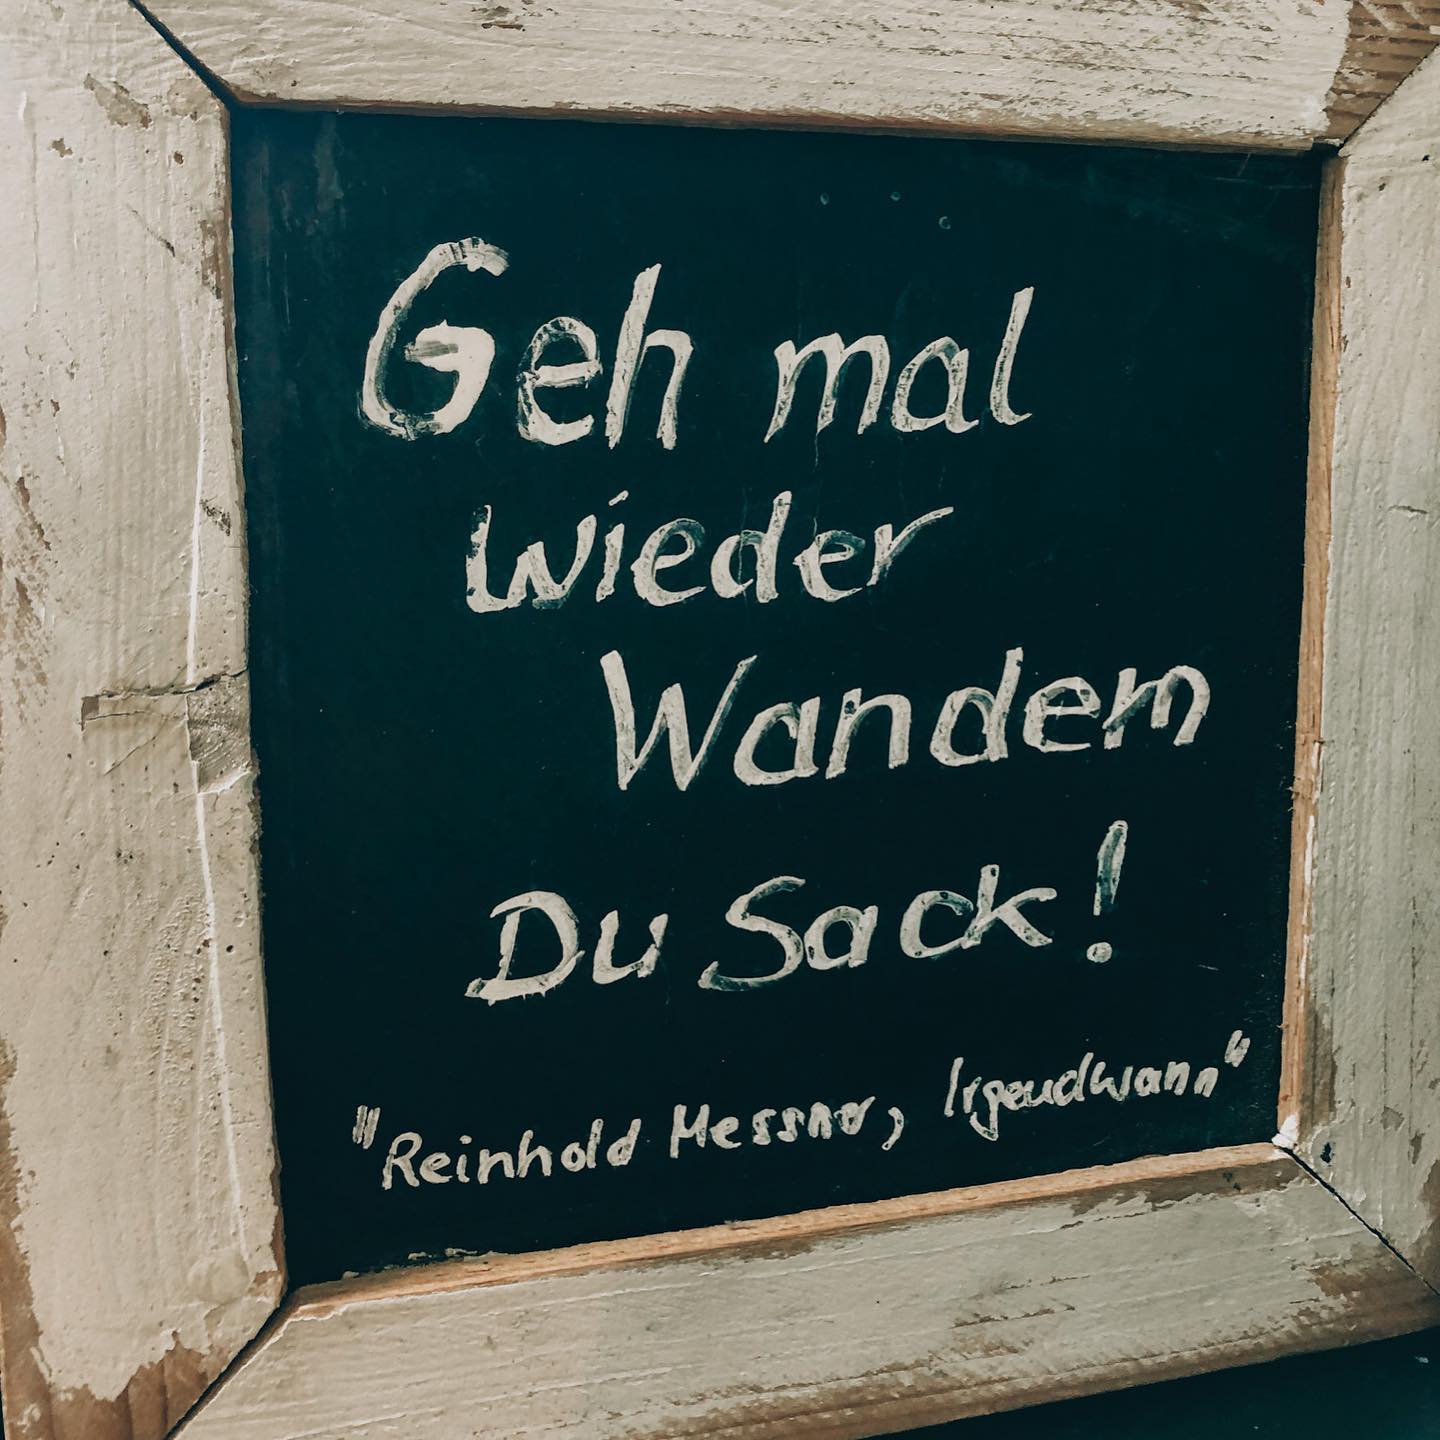 Geh mal
wieder
Wandern
Du Sack!
"Reinhold Messner, Irgendwann"